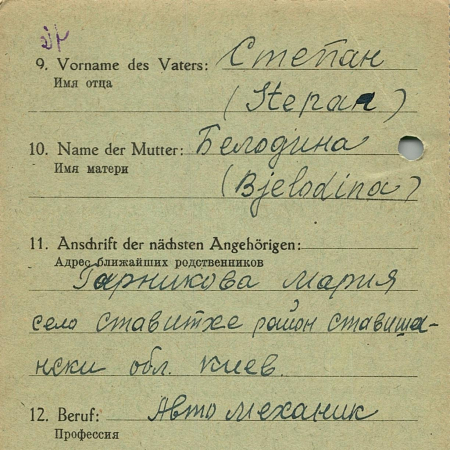 9. Vorname des Vaters: Степан
Имя отца
(Stepan)
10. Name der Mutter: Белодина
Имя матери
(Bjelodina)
11. Anschrift der nächsten Angehörigen:
Адрес ближайших родственников
Гарникова мария
село ставитхе район ставища-
нски обл. киев.
12. Beruf: Авто механик
Профессия